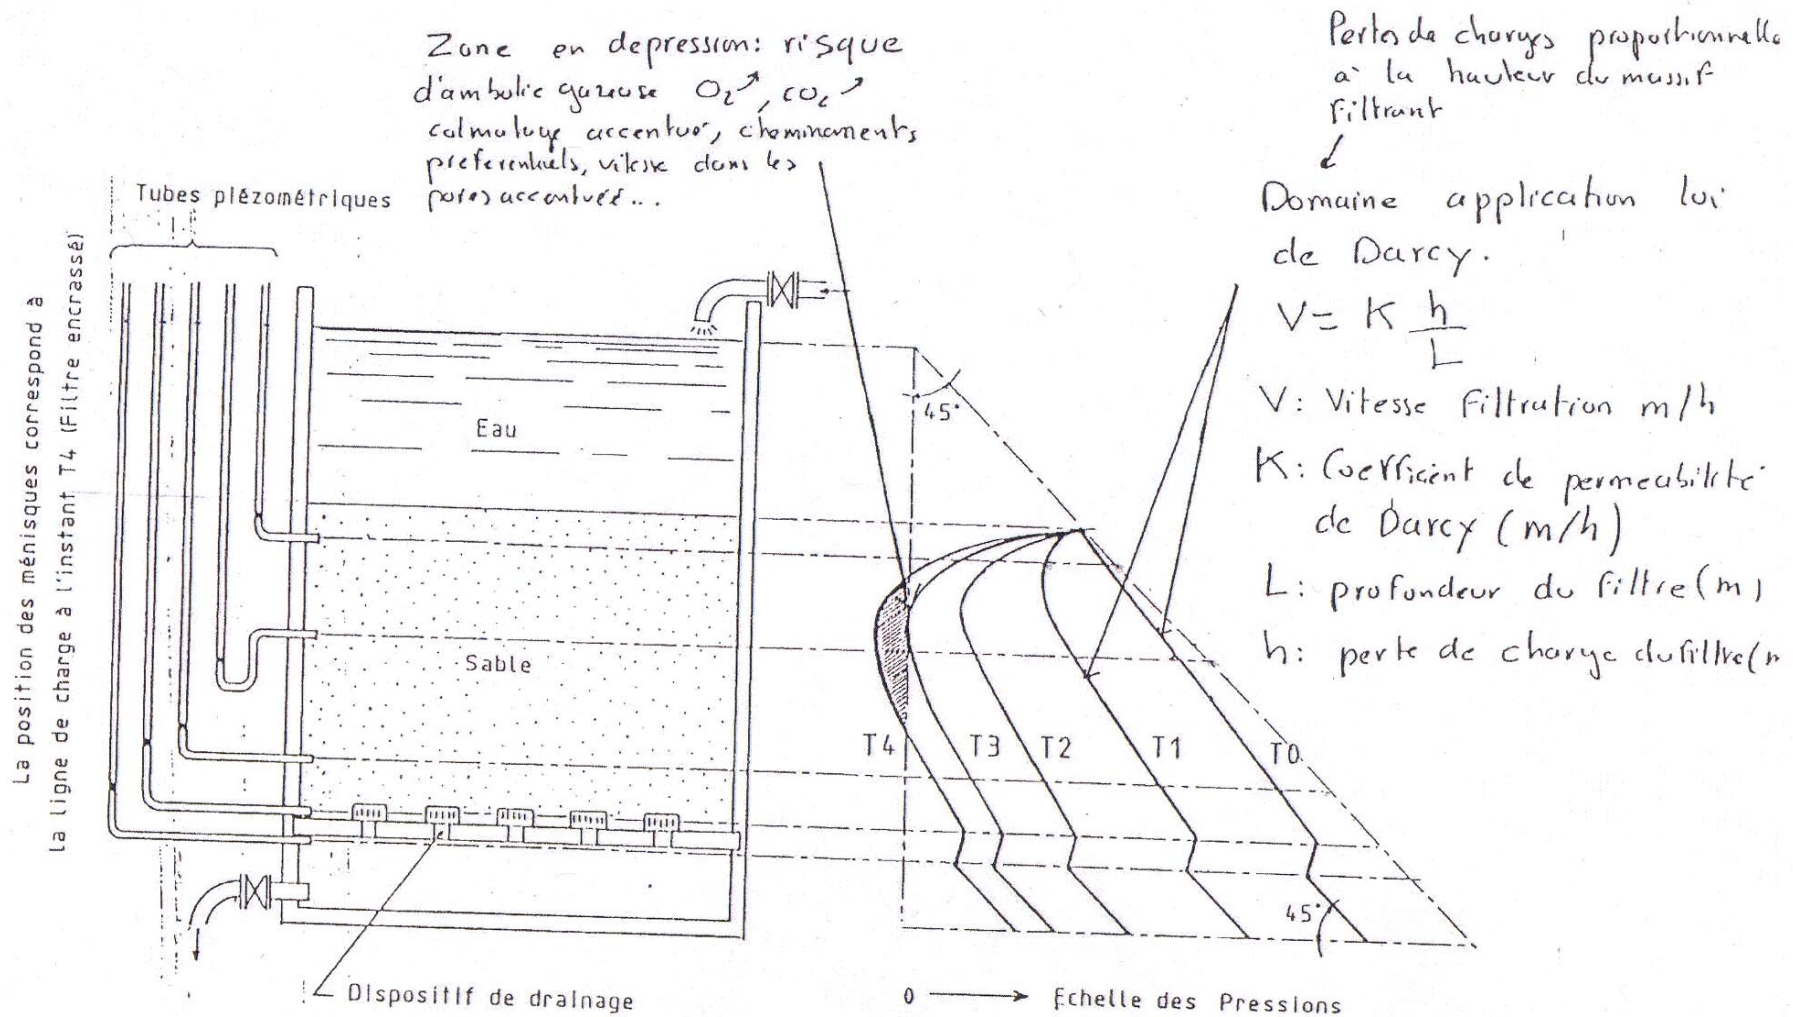 Zone en depression: risque
d'ambolie gazeuse O₂↗, CO₂↗
colmatage accentué, cheminements
preferentiels, vitesse dans les
pores accentuée...
Pertes de charges proportionnelle
à la hauteur du massif
Filtrant
Domaine application loi
de Darcy.
V = K h/L
V: Vitesse Filtration m/h
K: Coefficient de permeabilité
de Darcy (m/h)
L: profondeur du filtre (m)
h: perte de charge du filtre (m
Tubes piézométriques
La position des ménisques correspond à
la ligne de charge à l'instant T4 (Filtre encrassé)
Eau
Sable
45°
T4 T3 T2 T1 T0
45°
Dispositif de drainage
0 → Echelle des Pressions